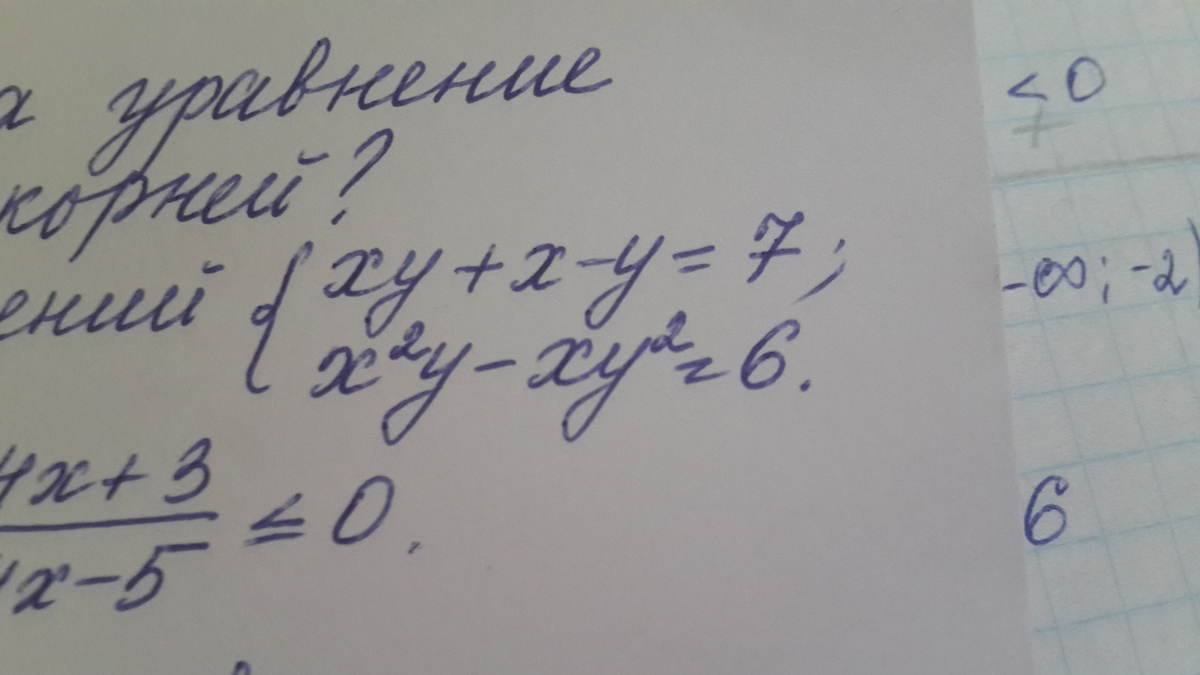 а уравнение
корней?
ений { xy + x - y = 7;
x²y - xy² = 6.
4x + 3
≤ 0.
4x - 5
< 0
+
-∞; -2)
6